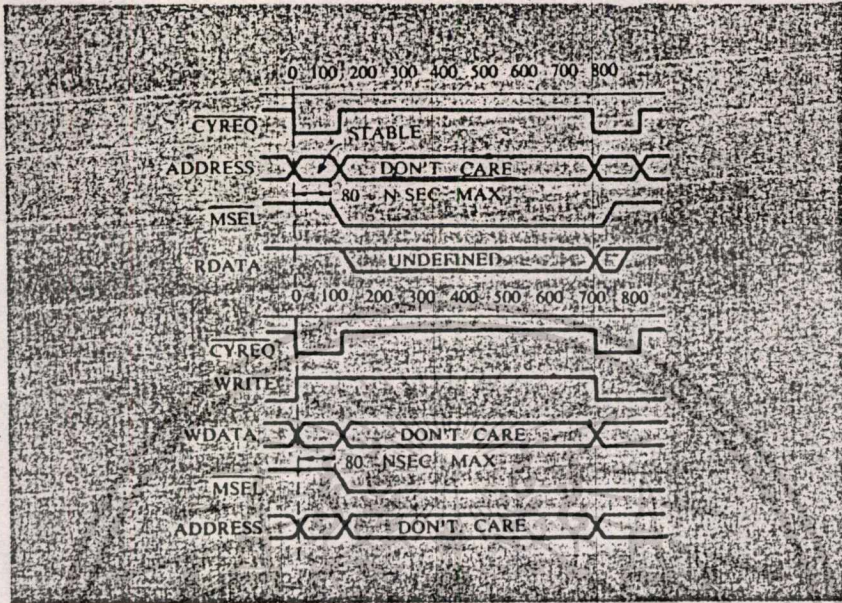 0 100 200 300 400 500 600 700 800
CYREQ
STABLE
ADDRESS DON'T CARE
80 N SEC MAX
MSEL
RDATA UNDEFINED
0 100 200 300 400 500 600 700 800
CYREQ
WRITE
WDATA DON'T CARE
80 NSEC MAX
MSEL
ADDRESS DON'T CARE